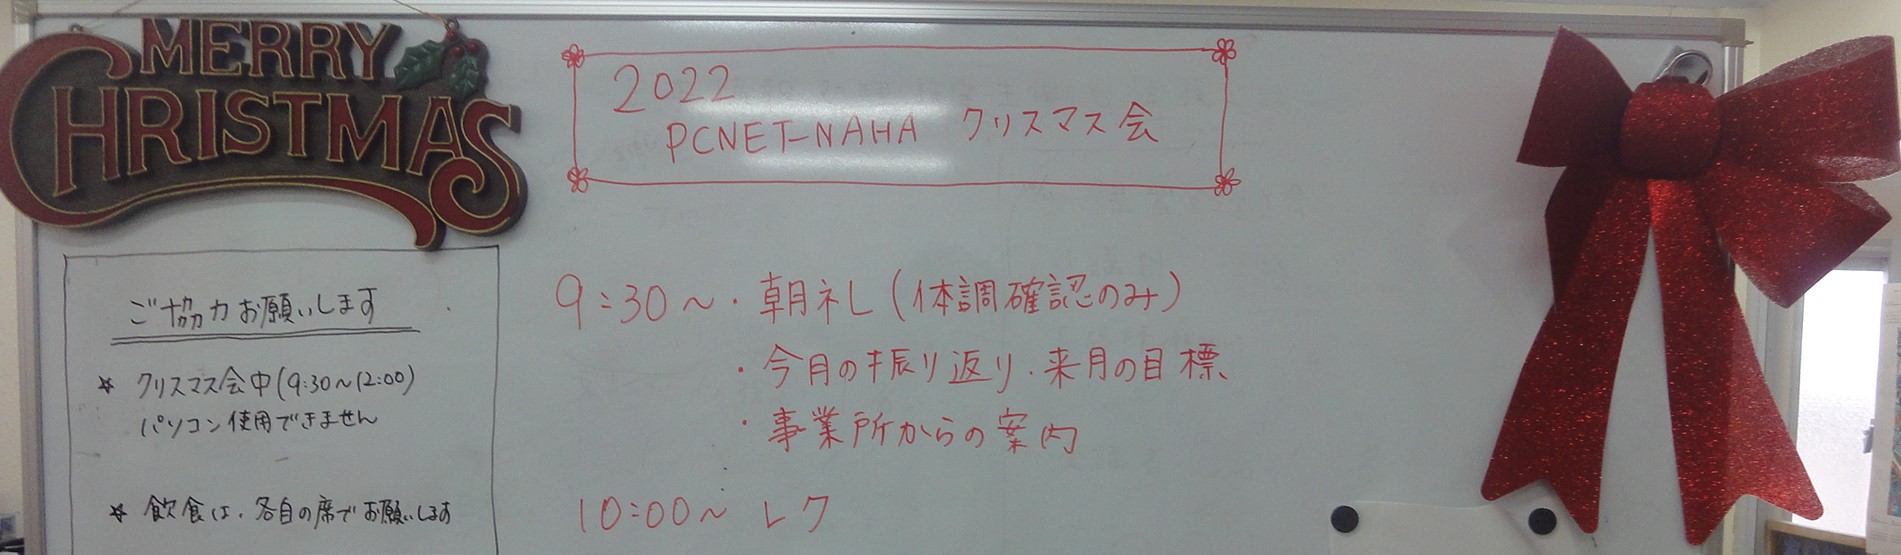 MERRY
CHRISTMAS
2022
PCNET-NAHA クリスマス会
ご協力お願いします
☆ クリスマス会中(9:30~12:00)
パソコン使用できません
☆ 飲食は、各自の席でお願いします
9:30~・朝礼(体調確認のみ)
・今月の振り返り・来月の目標
・事業所からの案内
10:00~ レク